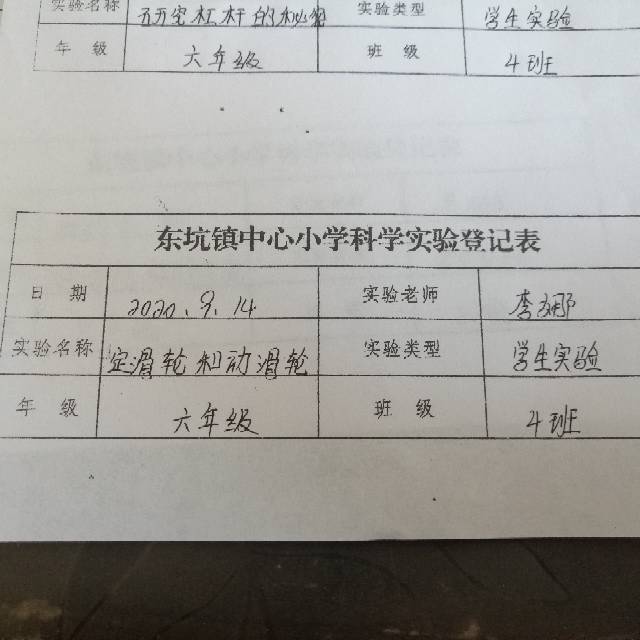 实验名称 研究杠杆的秘密 实验类型 学生实验
年 级 六年级 班 级 4班
东坑镇中心小学科学实验登记表
日 期 2020.9.14 实验老师 李娜
实验名称 定滑轮和动滑轮 实验类型 学生实验
年 级 六年级 班 级 4班